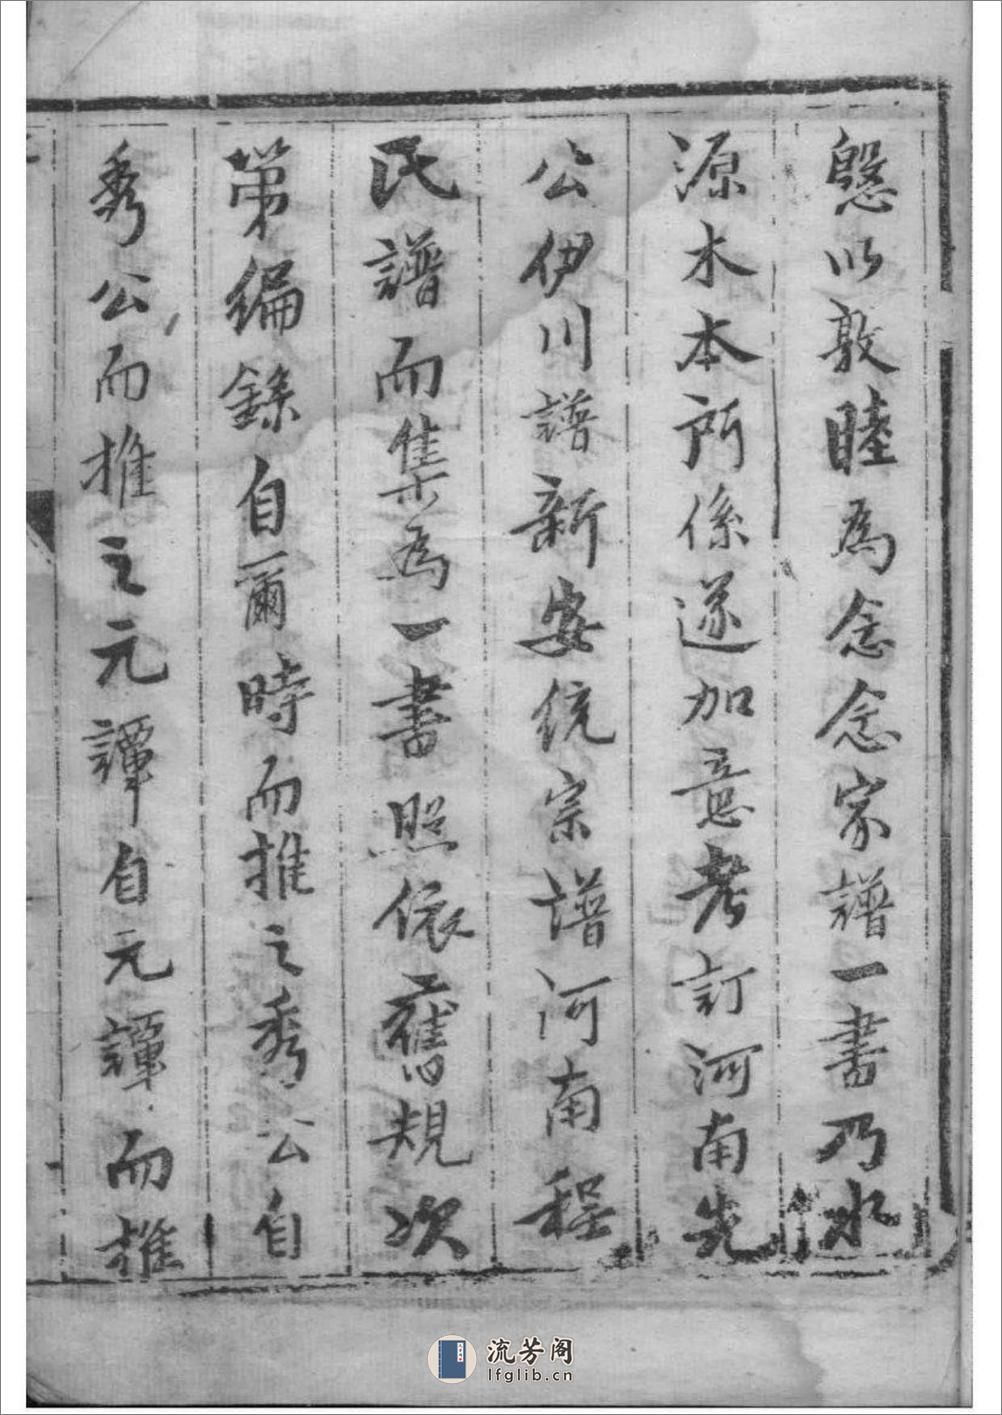 慇以敦睦為念念家譜一書乃水
源木本所係遂加意考訂河南先
公伊川譜新安统宗谱河南程
氏譜而集為一書照依舊規次
第編録自爾時而推之秀公自
秀公而推之元譚自元譚而推
流芳阁
lfglib.cn